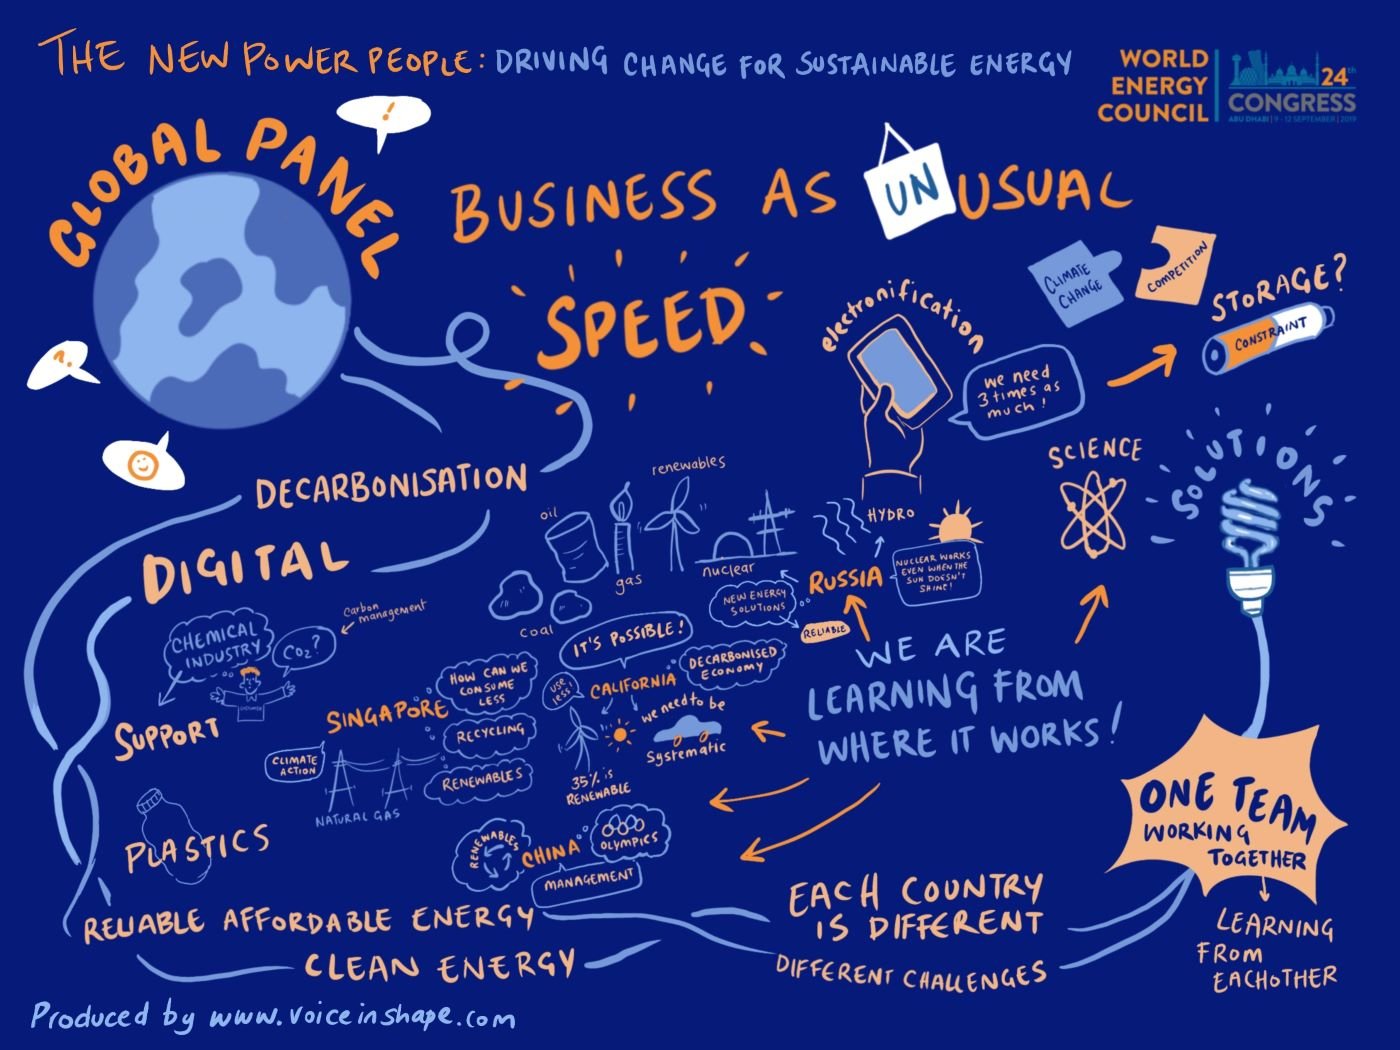 THE NEW POWER PEOPLE: DRIVING CHANGE FOR SUSTAINABLE ENERGY
WORLD
ENERGY
COUNCIL
24th
CONGRESS
ABU DHABI | 9 - 12 SEPTEMBER | 2019
GLOBAL PANEL
!
?
BUSINESS AS UNUSUAL
SPEED
electronification
we need
3 times as
much!
CLIMATE
CHANGE
COMPETITION
STORAGE?
CONSTRAINT
SCIENCE
SOLUTIONS
DECARBONISATION
DIGITAL
Carbon
management
CHEMICAL
INDUSTRY
CO2?
CUSTOMER
SUPPORT
PLASTICS
oil
gas
renewables
nuclear
coal
HYDRO
RUSSIA
NUCLEAR WORKS
EVEN WHEN THE
SUN DOESN'T
SHINE!
NEW ENERGY
SOLUTIONS
RELIABLE
IT'S POSSIBLE!
USE
LESS
CALIFORNIA
DECARBONISED
ECONOMY
we need to be
Systematic
35% is
RENEWABLE
SINGAPORE
HOW CAN WE
CONSUME
LESS
RECYCLING
RENEWABLES
CLIMATE
ACTION
NATURAL GAS
RENEWABLES
CHINA
OLYMPICS
MANAGEMENT
WE ARE
LEARNING FROM
WHERE IT WORKS!
ONE TEAM
WORKING
TOGETHER
LEARNING
FROM
EACHOTHER
EACH COUNTRY
IS DIFFERENT
DIFFERENT CHALLENGES
RELIABLE AFFORDABLE ENERGY
CLEAN ENERGY
Produced by www.voiceinshape.com